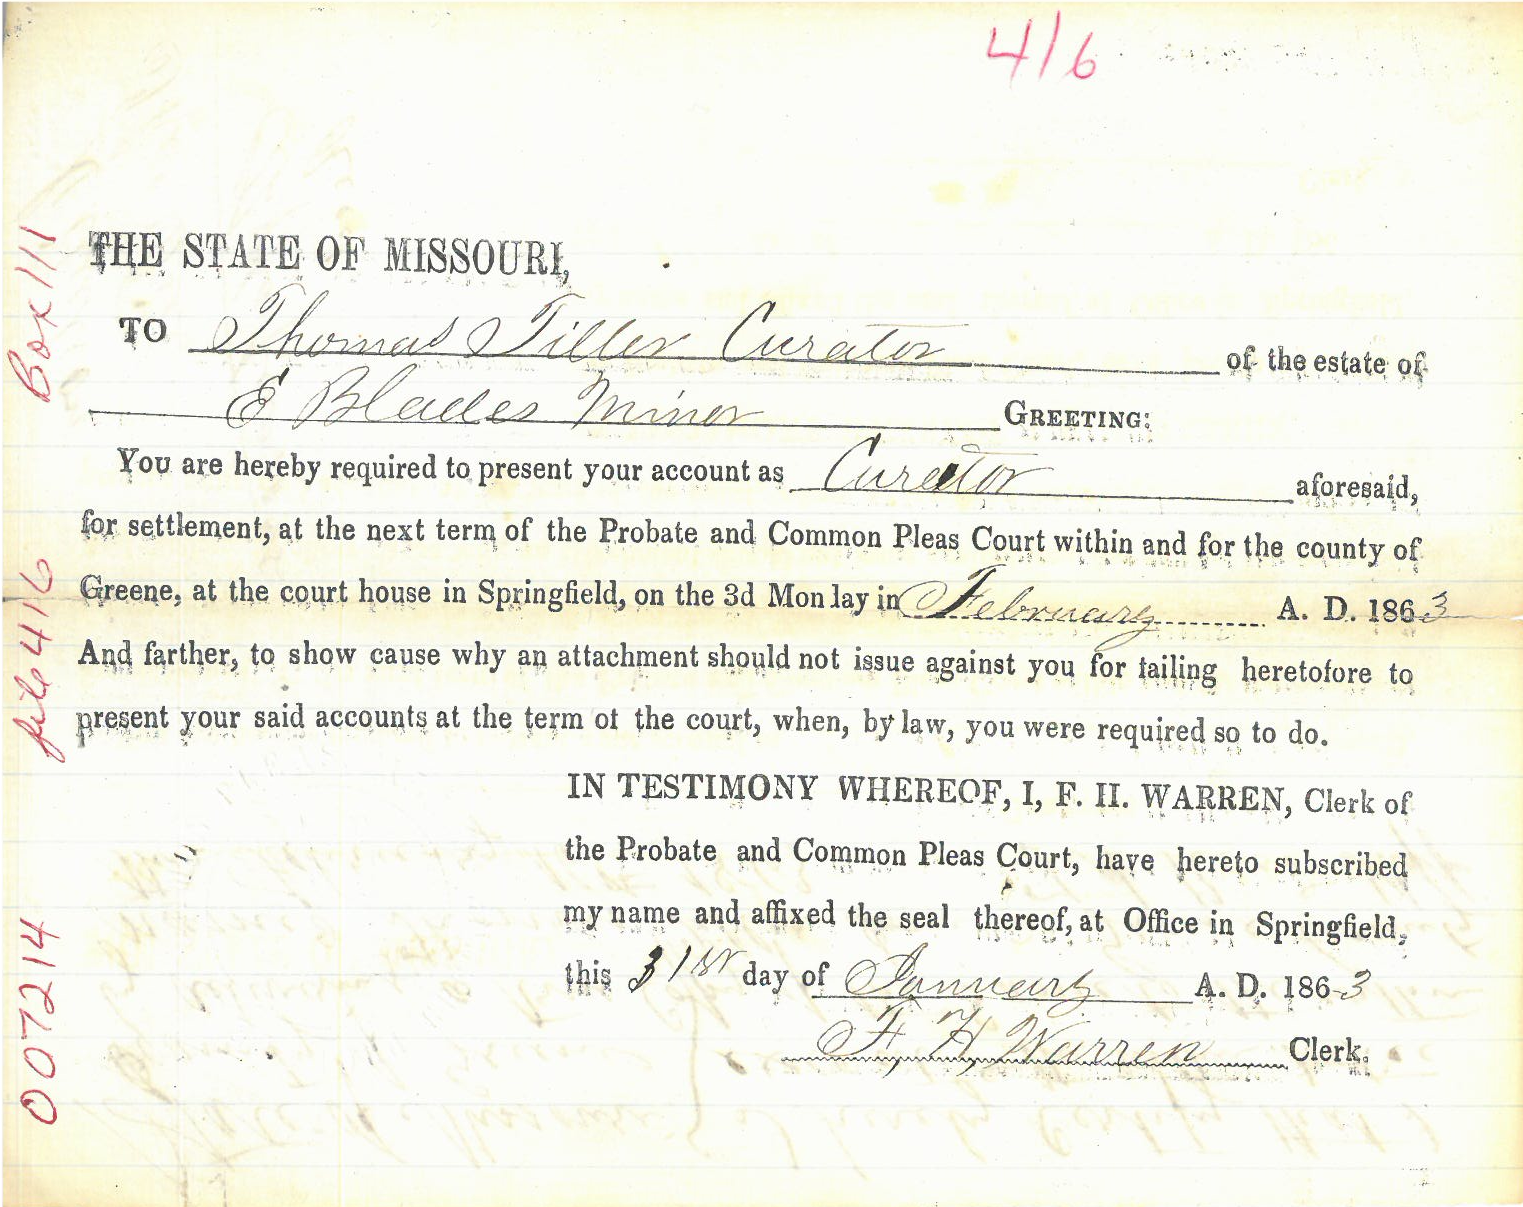 416
THE STATE OF MISSOURI,
TO Thomas Tiller Curator of the estate of
E Blades Minor GREETING:
You are hereby required to present your account as Curator aforesaid,
for settlement, at the next term of the Probate and Common Pleas Court within and for the county of
Greene, at the court house in Springfield, on the 3d Monlay in February A. D. 1863
And farther, to show cause why an attachment should not issue against you for failing heretofore to
present your said accounts at the term of the court, when, by law, you were required so to do.
IN TESTIMONY WHEREOF, I, F. H. WARREN, Clerk of
the Probate and Common Pleas Court, have hereto subscribed
my name and affixed the seal thereof, at Office in Springfield,
this 31st day of January A. D. 1863
F, H, Warren Clerk.
Box 111
file 416
007214